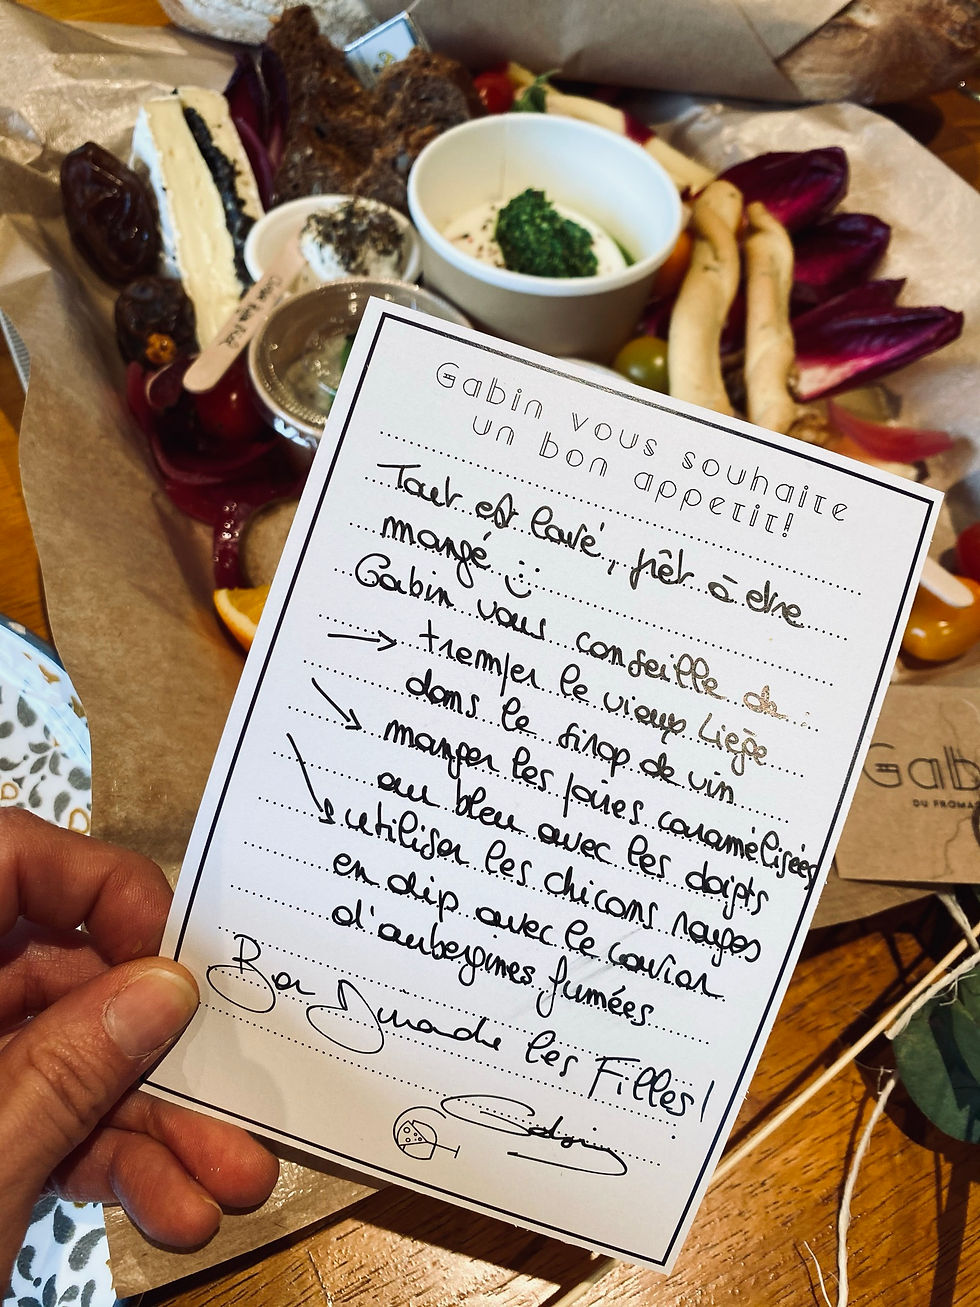 Gabin vous souhaite
un bon appetit!
Tout est lavé, prêt à être
mangé :)
Gabin vous conseille de :
→ tremper le vieux Liège
dans le sirop de vin
→ manger les poires caramélisées
au bleu avec les doigts
→ utiliser les chicons rouges
en dip avec le caviar
d'aubergines fumées
Bon Dimanche les Filles!
Gabin
DU FROMA